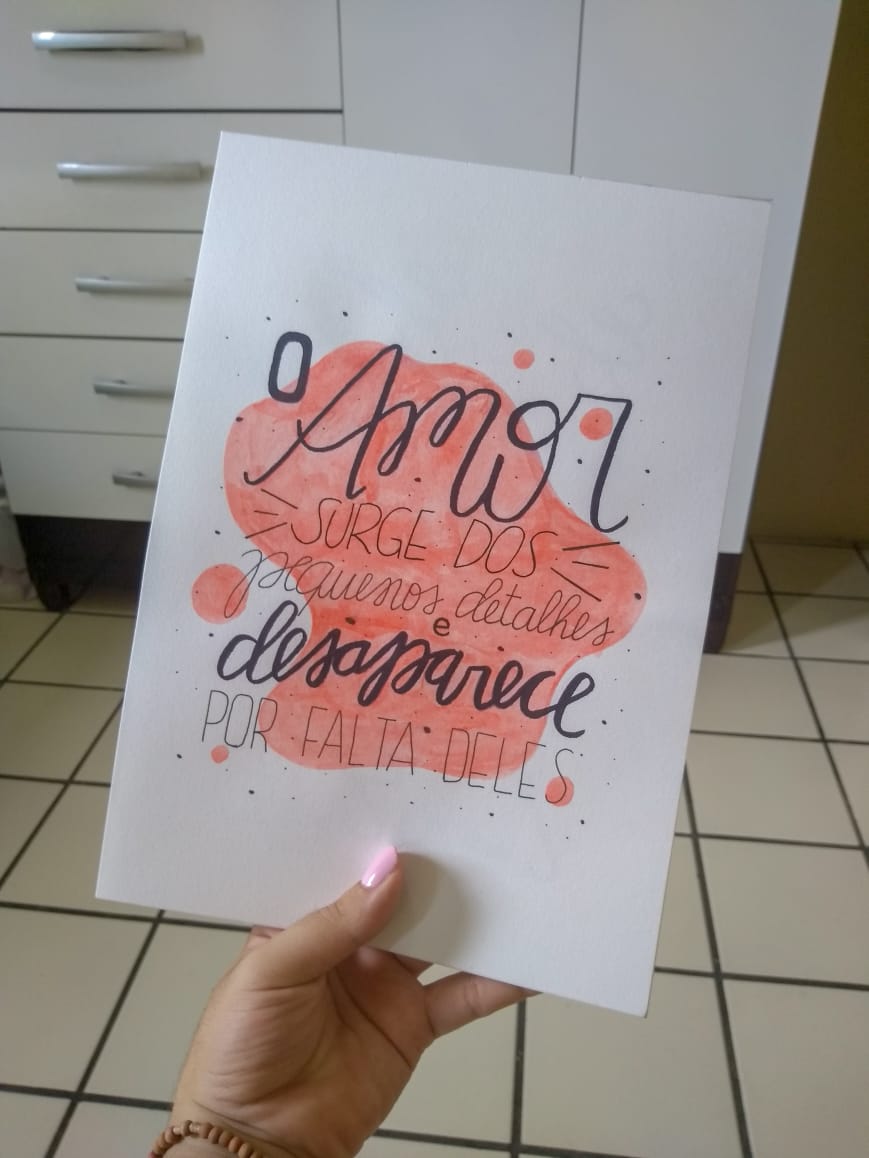 O Amor
SURGE DOS
pequenos detalhes
e
desaparece
POR FALTA DELES